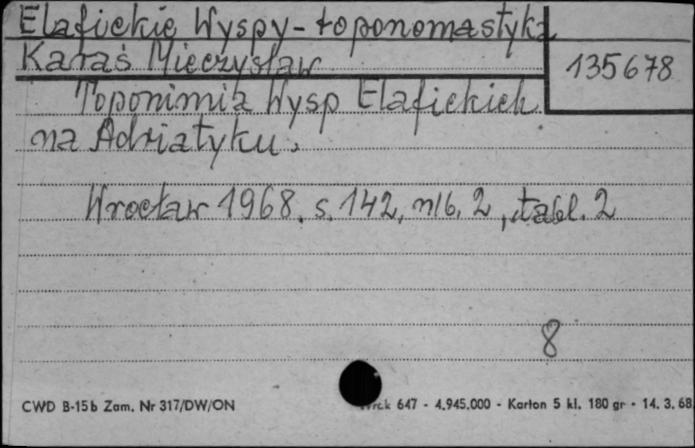 Elafickie Wyspy - toponomastyka
Karaś Mieczysław
135678
Toponimia Wysp Elafickich
na Adriatyku.
Wrocław 1968. s. 142, nlb. 2, tabl. 2
8
CWD B-15b Zam. Nr 317/DW/ON
647 - 4.945.000 - Karton 5 kl. 180 gr - 14. 3. 68